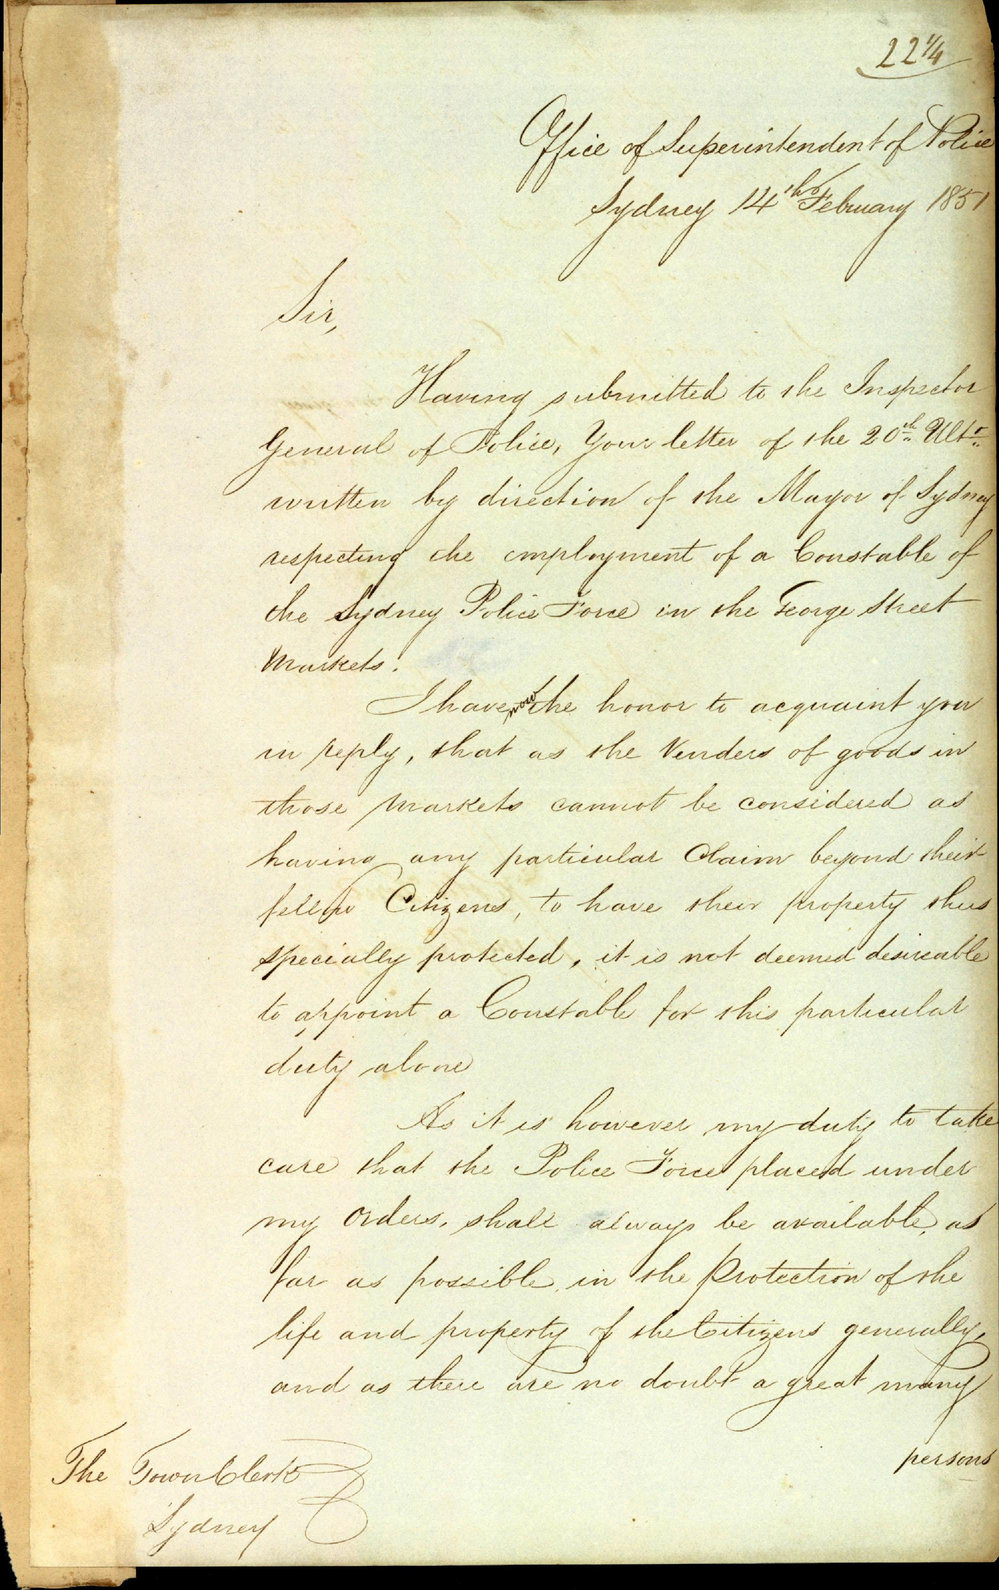 22 1/4
Office of Superintendent of Police
Sydney 14th February 1851
Sir,
Having submitted to the Inspector
General of Police, Your letter of the 20th Ulto
written by direction of the Mayor of Sydney
respecting the employment of a Constable of
the Sydney Police Force in the George Street
Markets.
I have now the honor to acquaint you
in reply, that as the Venders of goods in
those Markets cannot be considered as
having any particular Claim beyond their
fellow Citizens, to have their property thus
specially protected, it is not deemed desireable
to appoint a Constable for this particular
duty alone
As it is however my duty to take
care that the Police Force placed under
my Orders, shall always be available, as
far as possible, in the Protection of the
life and property of the Citizens generally,
and as there are no doubt a great many
persons
The Town Clerk
Sydney